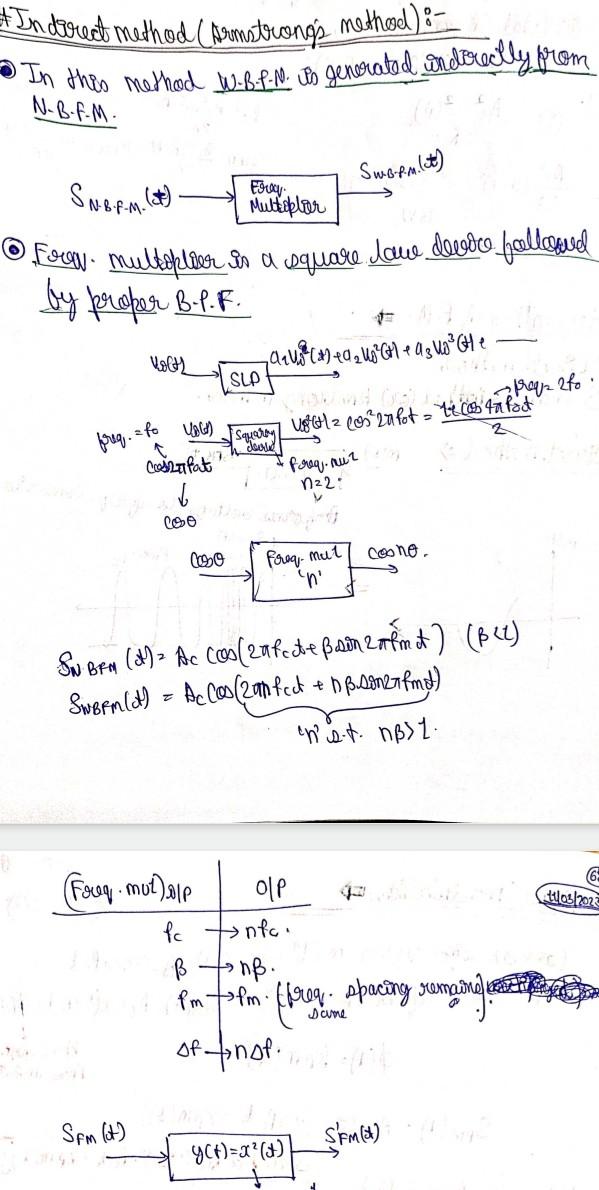 * Indirect method (Armstrong's method) :-
In this method W.B.F.M. is generated indirectly from
N.B.F.M.
S N.B.F.M. (t) → Freq. Multiplier → S W.B.F.M. (t)
Freq. multiplier is a square law device followed
by proper B.P.F.
SLD
freq. = 2f₀
freq. = f₀
Squaring device
= cos²2πf₀t =
2
cos2πf₀t
freq. mul
n=2
cosθ
cosθ → Freq. mul 'n' → cos nθ.
S NBFM (t) = Ac cos(2πfct + β sin2πfmt) (β<1)
S WBFM (t) = Ac Cos(2πnfct + nβ.sin2πfmt)
'n' s.t. nβ>1.
(Freq. mul) i/p | O/P
11/03/202
fc → nfc.
β → nβ.
fm → fm. {freq. spacing remains same}
Δf → nΔf.
S FM (t) → y(t) = x²(t) → S'FM(t)